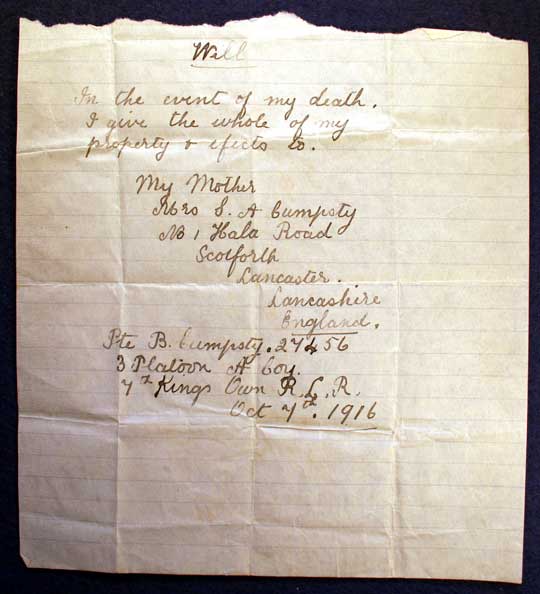 Will
In the event of my death.
I give the whole of my
property & efects to.
My Mother
Mrs S. A Cumpsty
No 1 Hala Road
Scotforth
Lancaster.
Lancashire
England.
Pte B. Cumpsty. 27456
3 Platoon A Coy.
7th Kings Own R. L. R.
Oct 7th. 1916